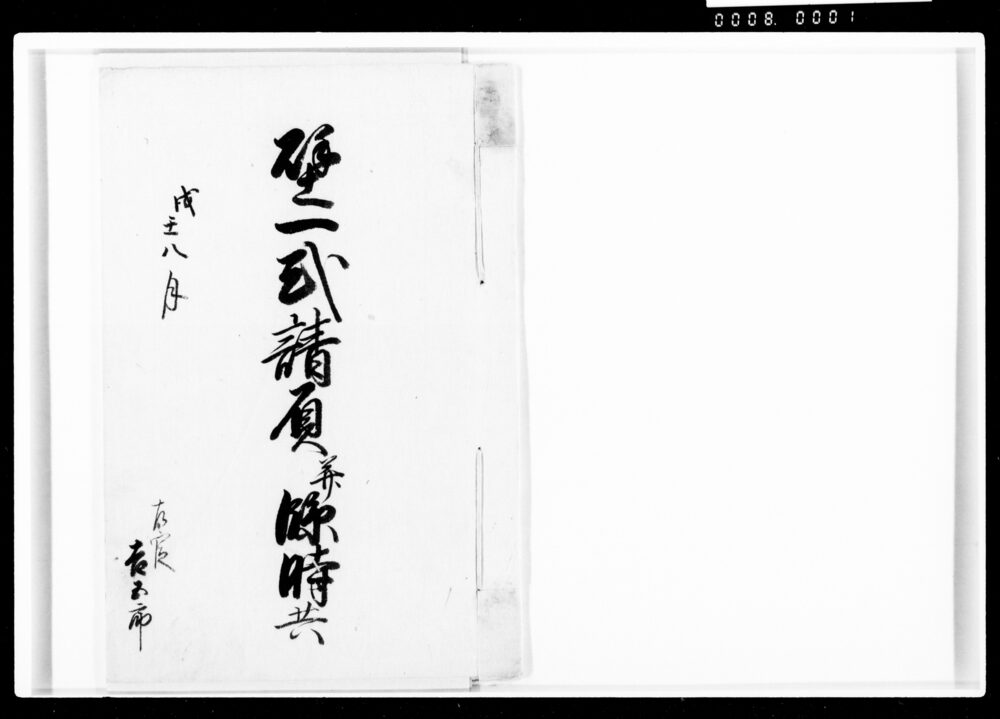 0008. 0001
壁一式請負并臨時共
戌壬八月
吉五郎